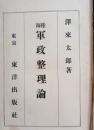 澤來太郎著
陸海
軍政整理論
東京 東洋出版社